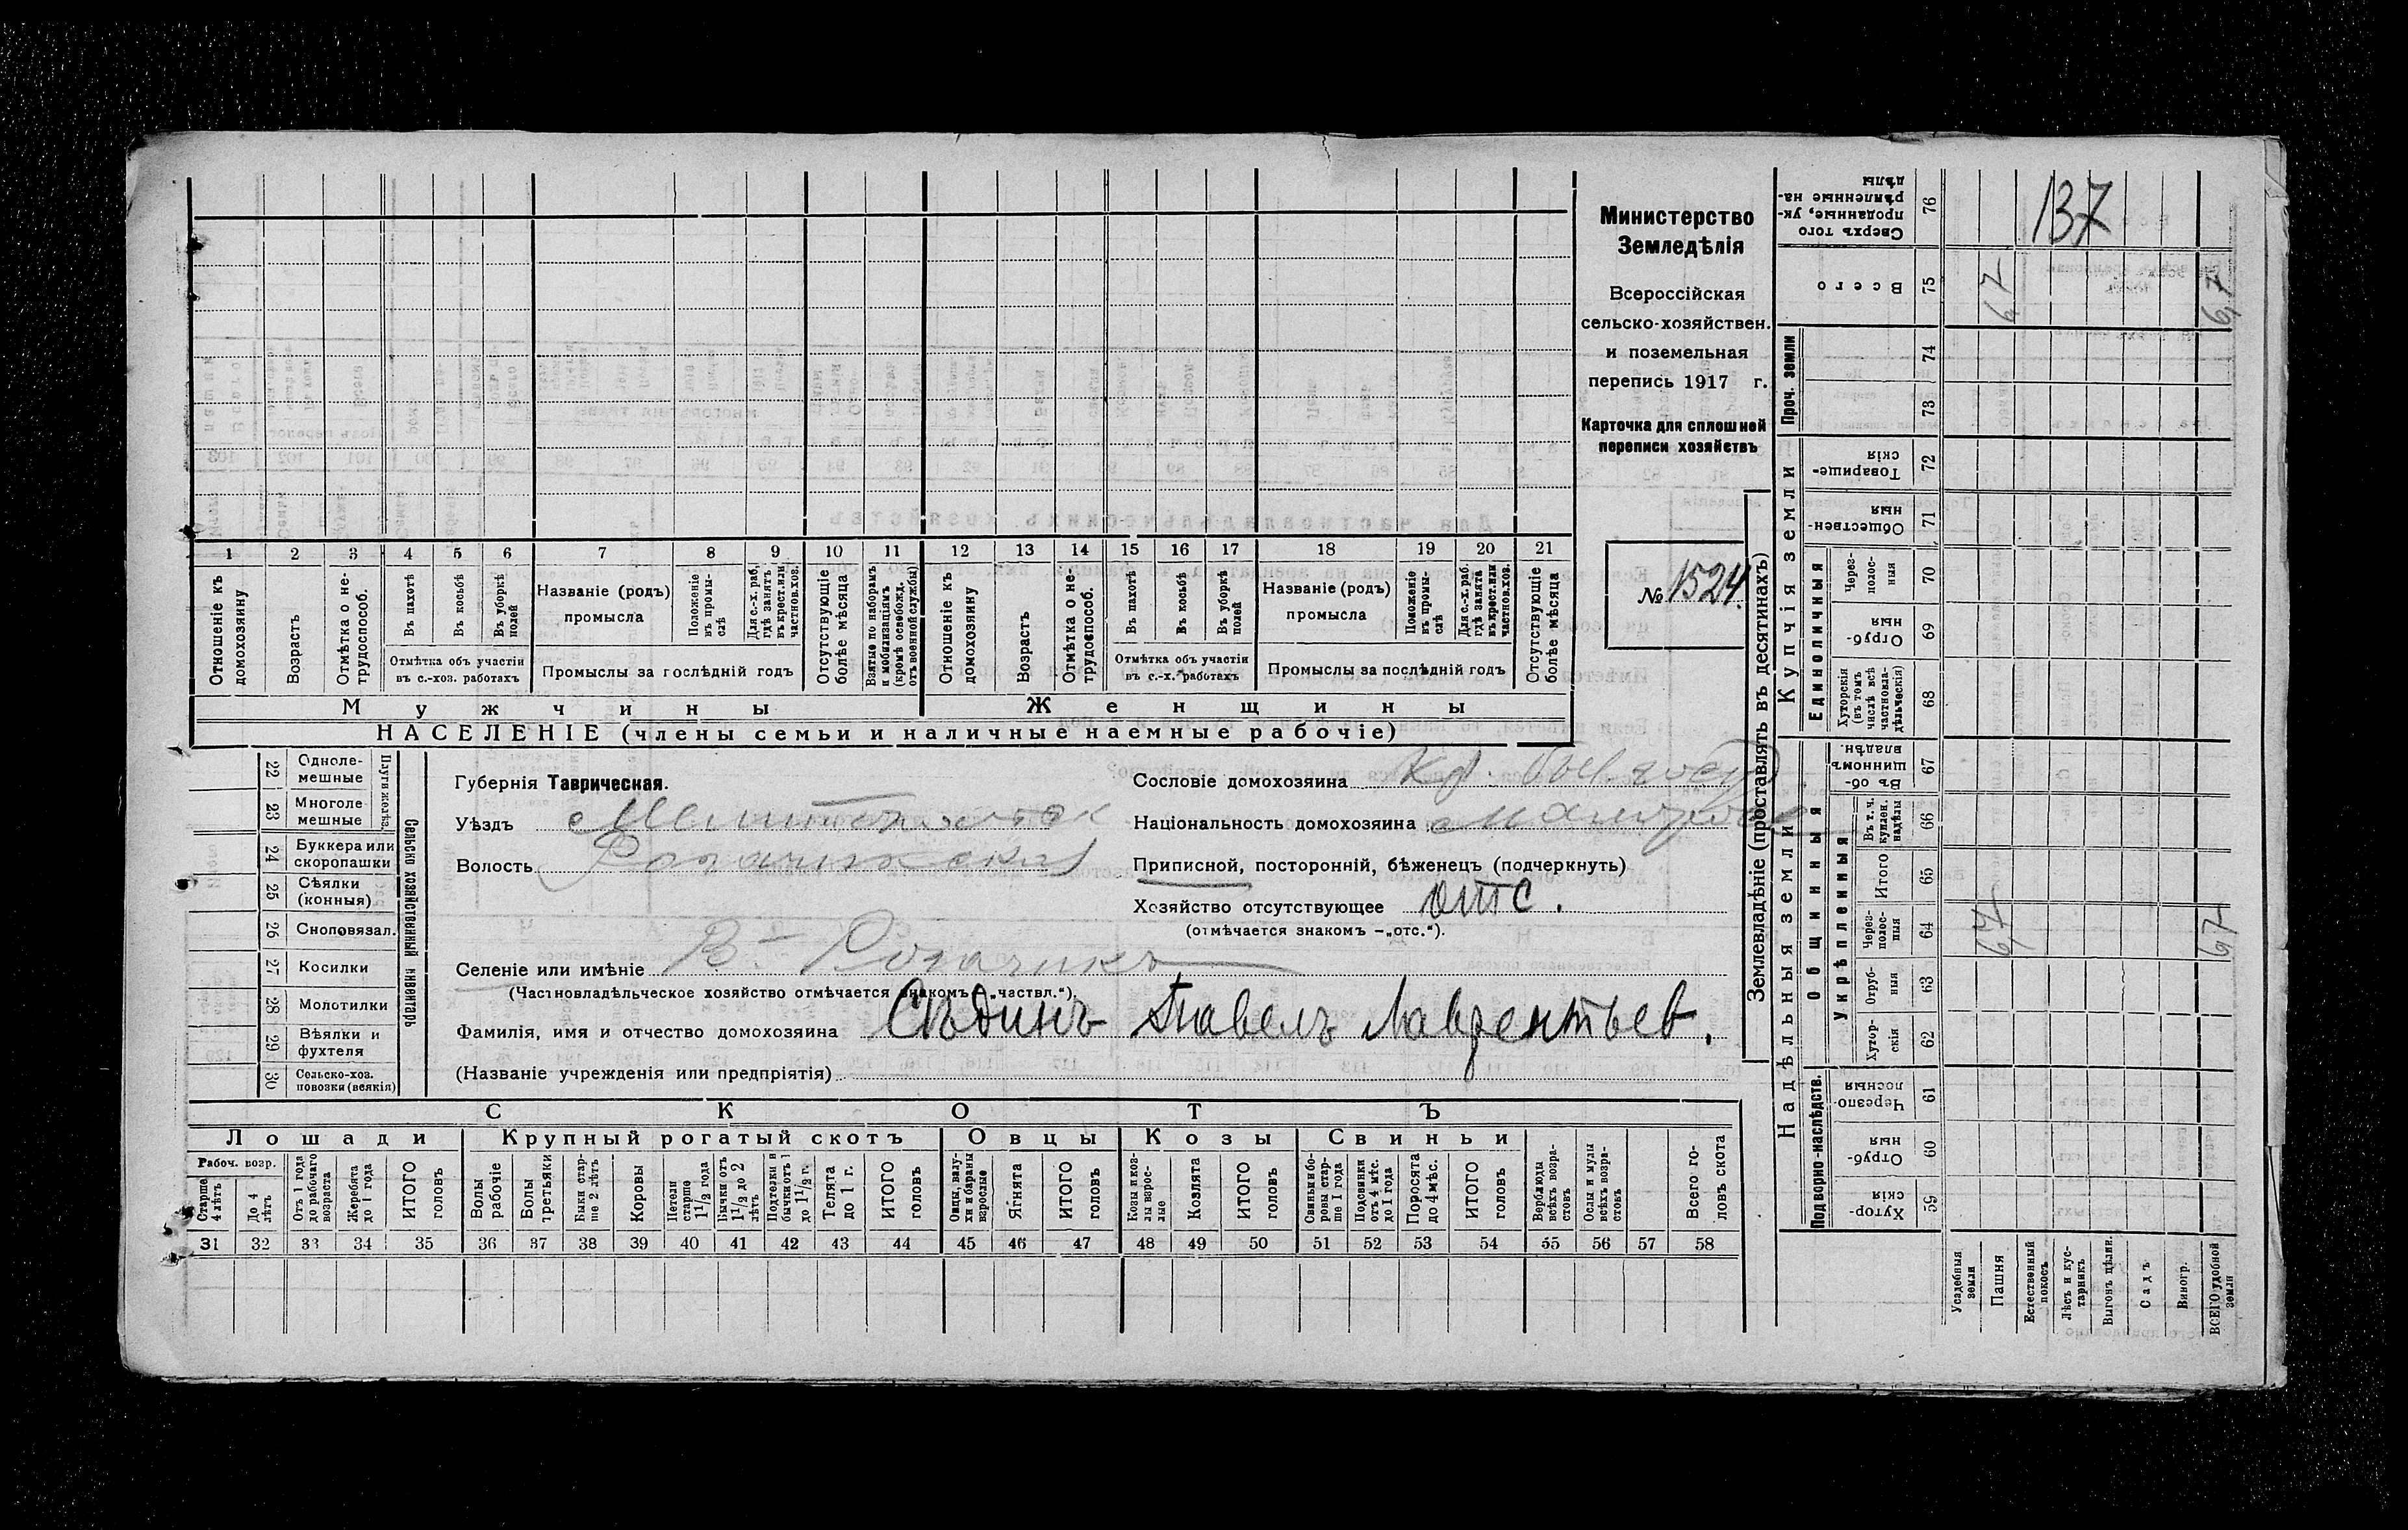 Министерство
Земледѣлія
Всероссійская
сельско-хозяйствен.
и поземельная
перепись 1917 г.
Карточка для сплошной
переписи хозяйствъ
№ 1524.
137
1 2 3 4 5 6 7 8 9 10 11 12 13 14 15 16 17 18 19 20 21
Отношеніе къ домохозяину
Возрастъ
Отмѣтка о не-трудоспособ.
Въ пахотѣ
Въ косьбѣ
Въ уборкѣ полей
Отмѣтка объ участіи
въ с.-хоз. работахъ
Названіе (родъ)
промысла
Положеніе въ промы-слѣ
Для с.-х. раб. гдѣ занятъ въ крест. или частнов. хоз.
Промыслы за послѣдній годъ
Отсутствующіе болѣе мѣсяца
Взятые по наборамъ и мобилизаціямъ (кромѣ освобожд. отъ военной службы)
Отношеніе къ домохозяину
Возрастъ
Отмѣтка о не-трудоспособ.
Въ пахотѣ
Въ косьбѣ
Въ уборкѣ полей
Отмѣтка объ участіи
въ с.-х. работахъ
Названіе (родъ)
промысла
Положеніе въ промы-слѣ
Для с.-х. раб. гдѣ занята въ крест. или частнов. хоз.
Промыслы за послѣдній годъ
Отсутствующіе болѣе мѣсяца
Мужчины Женщины
НАСЕЛЕНІЕ (члены семьи и наличные наемные рабочіе)
22 Одноле-мешные
23 Многоле мешные
Плуги желѣз.
24 Буккера или скоропашки
25 Сѣялки (конныя)
26 Сноповязал.
27 Косилки
28 Молотилки
29 Вѣялки и фухтеля
30 Сельско-хоз. повозки (всякія)
Сельско хозяйственный инвентарь
Губернія Таврическая.
Уѣздъ Мелитопольск
Волость Рогачикская
Селеніе или имѣніе В.- Рогачикъ
(Частновладѣльческое хозяйство отмѣчается знакомъ „частвл.“).
Фамилія, имя и отчество домохозяина Сѣдинъ Павелъ Лаврентьев.
(Названіе учрежденія или предпріятія)
Сословіе домохозяина Кр. быв. госуд
Національность домохозяина малорос
Приписной, посторонній, бѣженецъ (подчеркнуть)
Хозяйство отсутствующее отс.
(отмѣчается знакомъ –„отс.“).
СКОТЪ
Лошади Крупный рогатый скотъ Овцы Козы Свиньи
Рабоч. возр.
Старше 4 лѣтъ
До 4 лѣтъ
Отъ 1 года до рабочаго возраста
Жеребята до 1 года
ИТОГО головъ
Волы рабочіе
Волы третьяки
Быки стар-ше 2 лѣтъ
Коровы
Нетели старше 1 1/2 года
Бычки отъ 1 1/2 до 2 лѣтъ
Подтелки и бычки отъ 1 до 1 1/2 г.
Телята до 1 г.
ИТОГО головъ
Овцы, валу-хи и бараны взрослые
Ягнята
ИТОГО головъ
Козы и коз-лы взрос-лые
Козлята
ИТОГО головъ
Свиньи и бо-ровы стар-ше 1 года
Подсвинки отъ 4 мѣс. до 1 года
Поросята до 4 мѣс.
ИТОГО головъ
Верблюды всѣхъ возра-стовъ
Ослы и мулы всѣхъ возра-стовъ
Всего го-ловъ скота
31 32 33 34 35 36 37 38 39 40 41 42 43 44 45 46 47 48 49 50 51 52 53 54 55 56 57 58
Землевладѣніе (проставлять въ десятинахъ)
Надѣльныя земли Купчія земли Проч. земли
Подворно-наслѣдств. Общинныя Укрѣпленныя Единоличныя
59 Хутор-скія
60 Отруб-ныя
61 Черезпо-лосныя
62 Хутор-скія
63 Отруб-ныя
64 Через-полос-ныя 6,7 6,7
65 Итого
66 Въ т. ч. куплен. надѣлы
67 Въ об-щинномъ владѣн.
68 Хуторскія (въ томъ числѣ всѣ частновла-дѣльческія)
69 Отруб-ныя
70 Через-полос-ныя
71 Обществен-ныя
72 Товарище-скія
73
74
75 Всего 6,7 6,7
76 Сверхъ того проданные, ук-рѣпленные на-дѣлы
Усадебныя земли
Пашня
Естественный покосъ
Лѣсъ и кус-тарникъ
Выгонъ цѣлин.
Садъ
Виногр.
ВСЕГО удобной земли